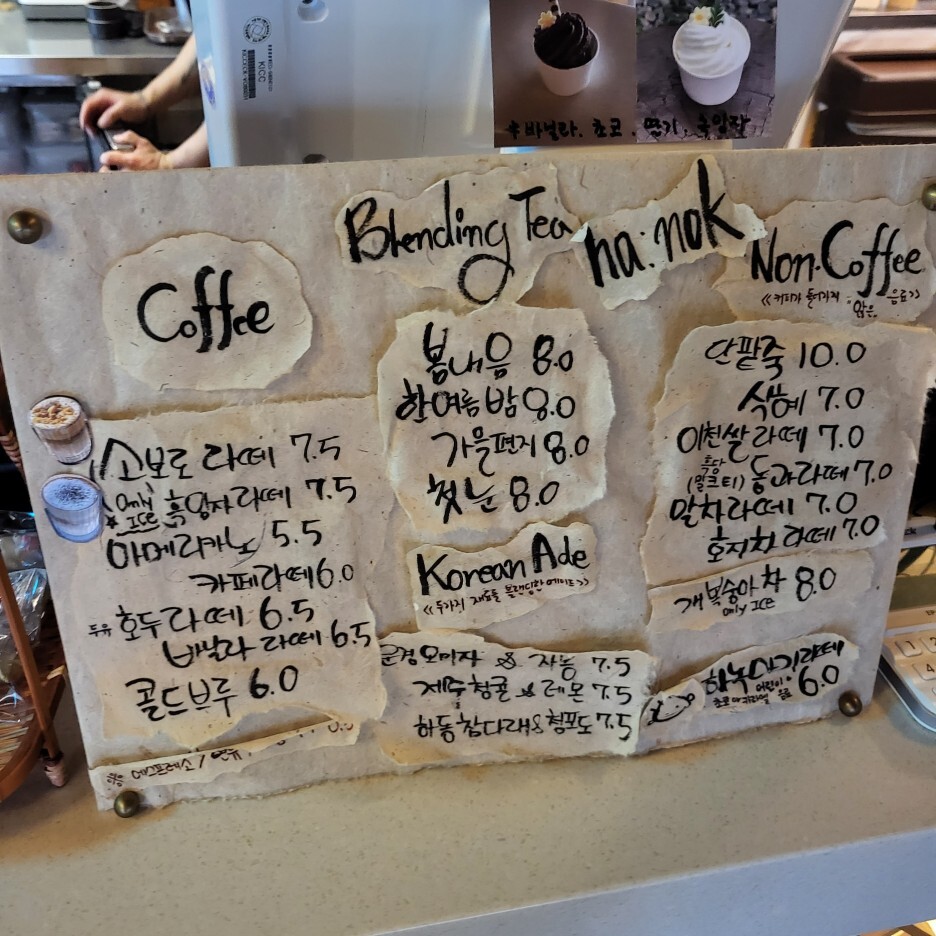 KICC
*바닐라. 초코. 딴기. 흑임자
Blending Tea
ha:nok
Coffee
Non-Coffee
<<커피가 들어가지 않은 음료>>
소보로 라떼 7.5
*only ICE 흑임자라떼 7.5
아메리카노 5.5
카페라떼 6.0
두유 호두라떼 6.5
바닐라 라떼 6.5
콜드브루 6.0
에스프레소 / 연유
봄내음 8.0
한여름밤 8.0
가을편지 8.0
첫눈 8.0
Korean Ade
<<두가지 재료를 블랜딩한 에이드>>
문경오미자 & 자몽 7.5
제주청귤 & 레몬 7.5
하동참다래 & 청포도 7.5
단팥죽 10.0
식혜 7.0
이천쌀라떼 7.0
흑당 (밀크티) 동과라떼 7.0
말차라떼 7.0
호지차라떼 7.0
개복숭아차 8.0
only ICE
하녹아기라떼 6.0
초코 어린이 음료